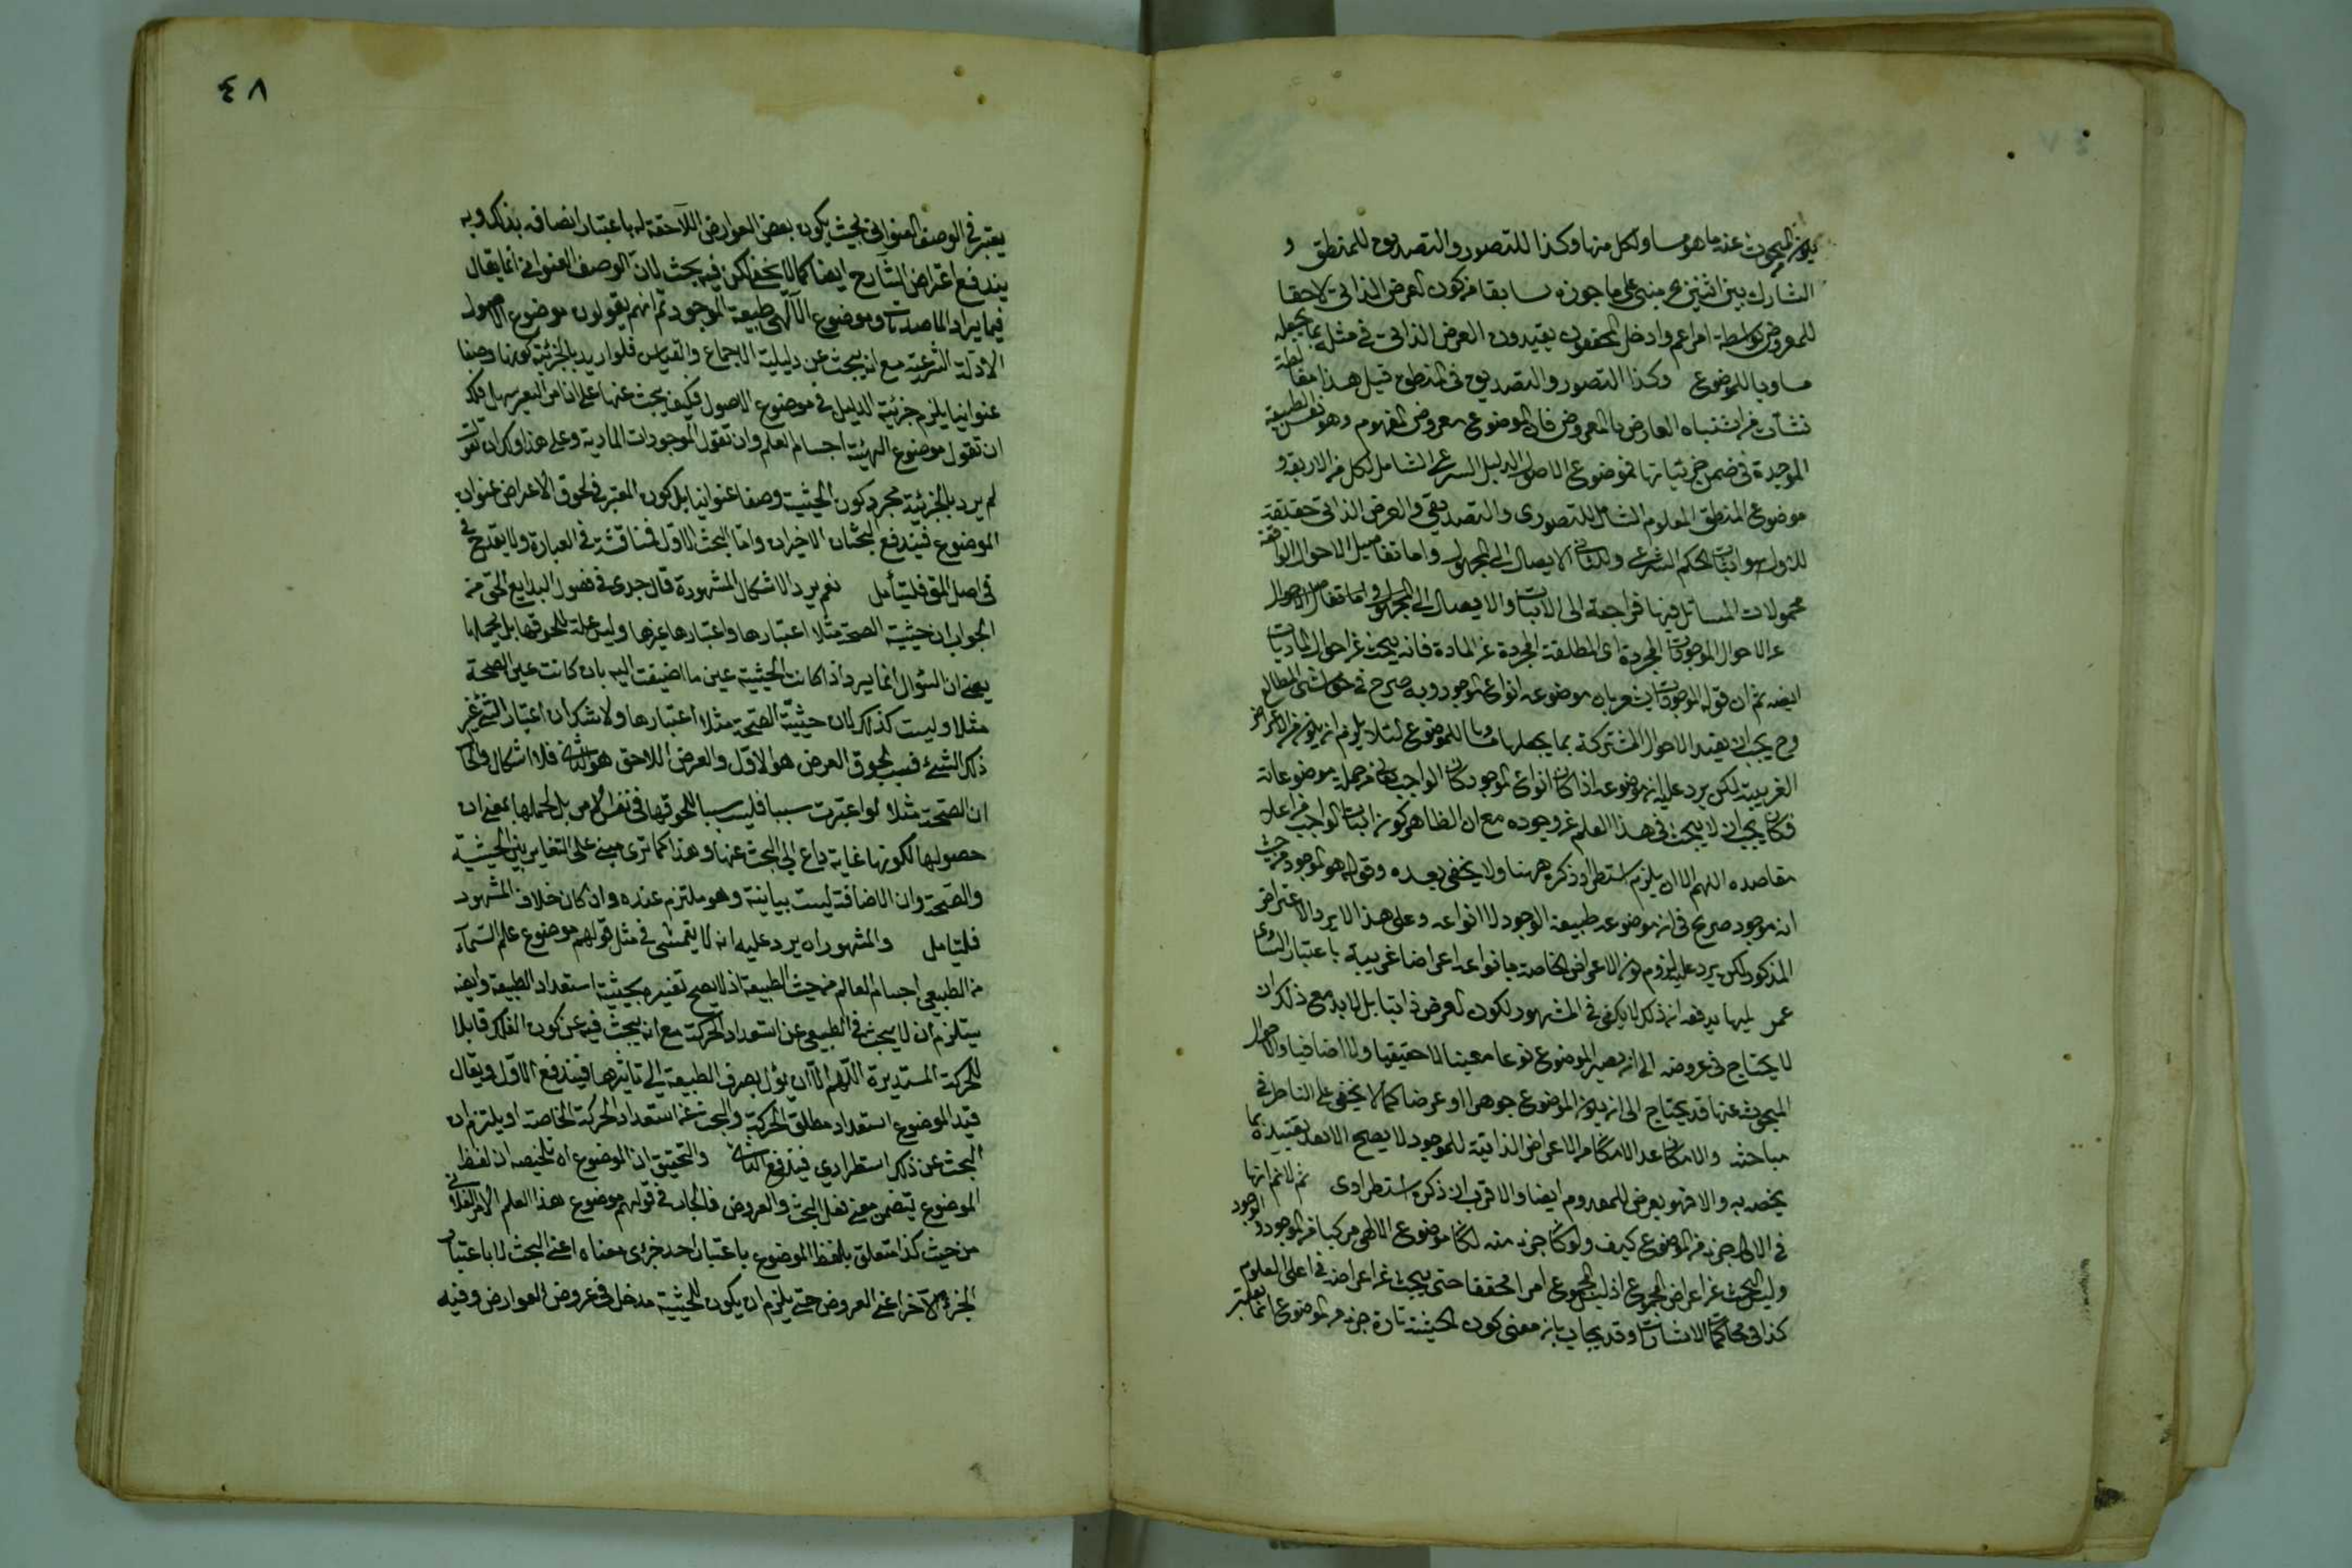 يكون المبحوث عنه ما هو مساو لكل منها وكذا للتصور والتصديق للمنطق و
التشارك بين اثنين مبنى على ما جوزه سابقا من كون العرض الذاتي لاحقا
للمعروض بواسطة امر اعم وادخل المحققون يقيدون العرض الذاتي في مثله بما يجعله
مساويا للموضوع وكذا التصور والتصديق في المنطق قيل هذا مغالطة
نشأت من اشتباه العارض بالمعروض فان الموضوع معروض المفهوم وهو نفس الطبيعة
الموجودة في ضمن جزئياتها فموضوع الاصول الدليل الشرعي الشامل لكل من الاربعة و
موضوع المنطق المعلوم الشامل للتصوري والتصديقي والعرض الذاتي حقيقة
للاول هو اثبات الحكم الشرعي وللثاني الايصال الى المجهول واما تفاصيل الاحوال الواقعة
محمولات المسائل فيها فراجعة الى الاثبات والايصال الى المجهول واما تفاصيل الاحوال
الاحوال الموجودات المجردة اى المطلقة المجردة عن المادة فانه يبحث عن احوال الماديات
ايضه ثم ان قوله الموجودات يشعر بان موضوعه انواع الموجود وبه صرح في حواشي المطالع
وح يجب ان يقيد الاحوال المشتركة بما يجعلها مساويا للموضوع لئلا يلزم ان يكون من الاعراض
الغريبة لكن يرد عليه ان موضوعه اذا كان انواع الموجود كان الواجب تعالى من جملة موضوعاته
فكان يجب ان لا يبحث في هذا العلم عن وجوده مع ان الظاهر كون اثبات الواجب من اعلى
مقاصده اللهم الا ان يلتزم استطراد ذكره ههنا ولا يخفى بعده وقوله هو الموجود من حيث
انه موجود صريح في ان موضوعه طبيعة الوجود لا انواعه وعلى هذا لا يرد الاعتراض
المذكور لكن يرد عليه لزوم كون الاعراض الخاصة بانواعه اعراضا غريبة باعتبار التساوى
ذلك لا يكفي في المشهور لكون العرض ذاتيا بل لابد مع ذلك ان
لا يحتاج في عروضه الى ان يصير الموضوع نوعا معينا لا حقيقيا ولا اضافيا والاحوال
المبحوث عنها قد يحتاج الى ان يكون الموضوع جوهرا او عرضا كما لا يخفى على الناظر في
مباحثه والامكان عد الامكان من الاعراض الذاتية للموجود لا يصح الا بعد تقييده بما
يخصه به والا فهو يعرض للمعدوم ايضا والاقرب ان ذكره استطرادى ثم لا نم انها
في الالهى جزء من الموضوع كيف ولو كان جزء منه لكان موضوع الالهى مركبا من الموجود والوجود
وليس البحث عن اعراض المجموع اذ ليس المجموع امرا محققا حتى يبحث عن اعراضه في اعلى العلوم
كذا في محاكمات الاشارات وقد يجاب بان معنى كون الحيثية تارة جزء من الموضوع انما يعتبر
٤٨
يعتبر في الوصف العنواني بحيث يكون بعض العوارض اللاحقة له باعتبار اتصافه بذلك وبه
يندفع اعتراض الشارح ايضا كما لا يخفى لكن فيه بحث لان الوصف العنواني انما يقال
فيما يراد الماصدقات وموضوع الالهى طبيعة الموجود ثم انهم يقولون موضوع الاصول
الادلة الشرعية مع انه يبحث عن دليلية الاجماع والقياس فلو اريد بالجزئية كونها وصفا
عنوانيا يلزم جزئية الدليل في موضوع الاصول فكيف يبحث عنها على ان امر التعبير سهل فلك
ان تقول موضوع الهيئة اجسام العلم وان تقول الموجودات المادية وعلى هذا ولك ان تقول
لم يرد بالجزئية مجرد كون الحيثية وصفا عنوانيا بل كون المعتبر في لحوق الاعراض عنوان
الموضوع فيندفع البحثان الاخيران واما البحث الاول فمناقشة في العبارة ولا يقدح في
في اصل المق فليتأمل نعم يرد الاشكال المشهورة قال جدى في فصول البدايع الحق في
الجواب ان حيثية الصحة مثلا اعتبارها واعتبارها غيرها وليس علة للحوقها بل لحملها
يعنى ان السؤال انما يرد اذا كانت الحيثية عين ما اضيفت اليه بان كانت عين الصحة
مثلا وليست كذلك لان حيثية الصحة مثلا اعتبارها ولا شك ان اعتبار الشئ غير
ذلك الشئ فسبب لحوق العرض هو الاول والعرض اللاحق هو الثاني فلا اشكال والحاصل
ان الصحة مثلا لو اعتبرت سببا فليس سببا للحوقها في نفس الامر بل لحملها بمعنى ان
حصولها لكونها غاية داع الى البحث عنها وهذا كما ترى مبنى على التغاير بين الحيثية
والصحة وان الاضافة ليست بيانية وهو ملتزم عنده وان كان خلاف المشهور
فليتامل والمشهور اه يرد عليه انه لا يتمشى في مثل قولهم موضوع علم السماء
من الطبيعى اجسام العالم من حيث الطبيعة اذ لا يصح تفسيره بحيثية استعداد الطبيعة وايضه
يستلزم ان لا يبحث في الطبيعى عن استعداد الحركة مع انه يبحث فيه عن كون الفلك قابلا
للحركة المستديرة اللهم الا ان يؤل بصرف الطبيعة الى تاثيرها فيندفع الاول ويقال
قيد الموضوع استعداد مطلق الحركة والبحث عن استعداد الحركة الخاصة او يلتزم ان
البحث عن ذلك استطرادى فيندفع الثاني والتحقيق ان الموضوع اه تلخيصه ان لفظ
الموضوع يتضمن معنى فعل البحث والعروض فالجار في قولهم موضوع هذا العلم الامر الفلاني
من حيث كذا متعلق بلفظ الموضوع باعتبار احد جزئى معناه اعنى البحث لا باعتبار
الجزء الآخر اعنى العروض حتى يلزم ان يكون للحيثية مدخل في عروض العوارض وفيه